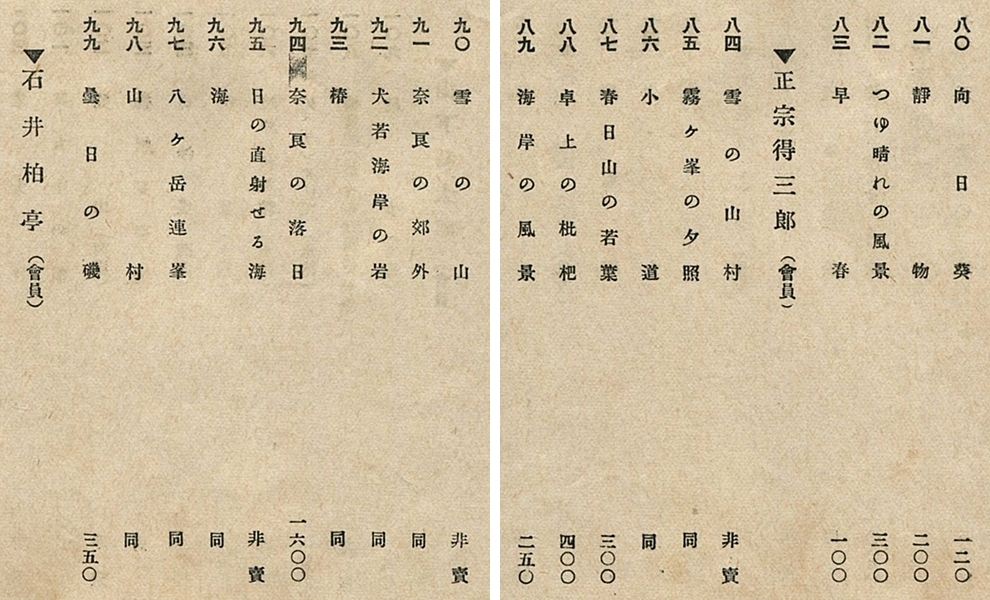 八〇 向日葵 一二〇
八一 靜物 二〇〇
八二 つゆ晴れの風景 三〇〇
八三 早春 一〇〇
▼正宗得三郎（會員）
八四 雪の山村 非賣
八五 霧ヶ峯の夕照 同
八六 小道 同
八七 春日山の若葉 三〇〇
八八 卓上の枇杷 四〇〇
八九 海岸の風景 二五〇
九〇 雪の山 非賣
九一 奈良の郊外 同
九二 犬若海岸の岩 同
九三 椿 同
九四 奈良の落日 一六〇〇
九五 日の直射せる海 非賣
九六 海 同
九七 八ヶ岳連峯 同
九八 山村 同
九九 曇日の磯 三五〇
▼石井柏亭（會員）